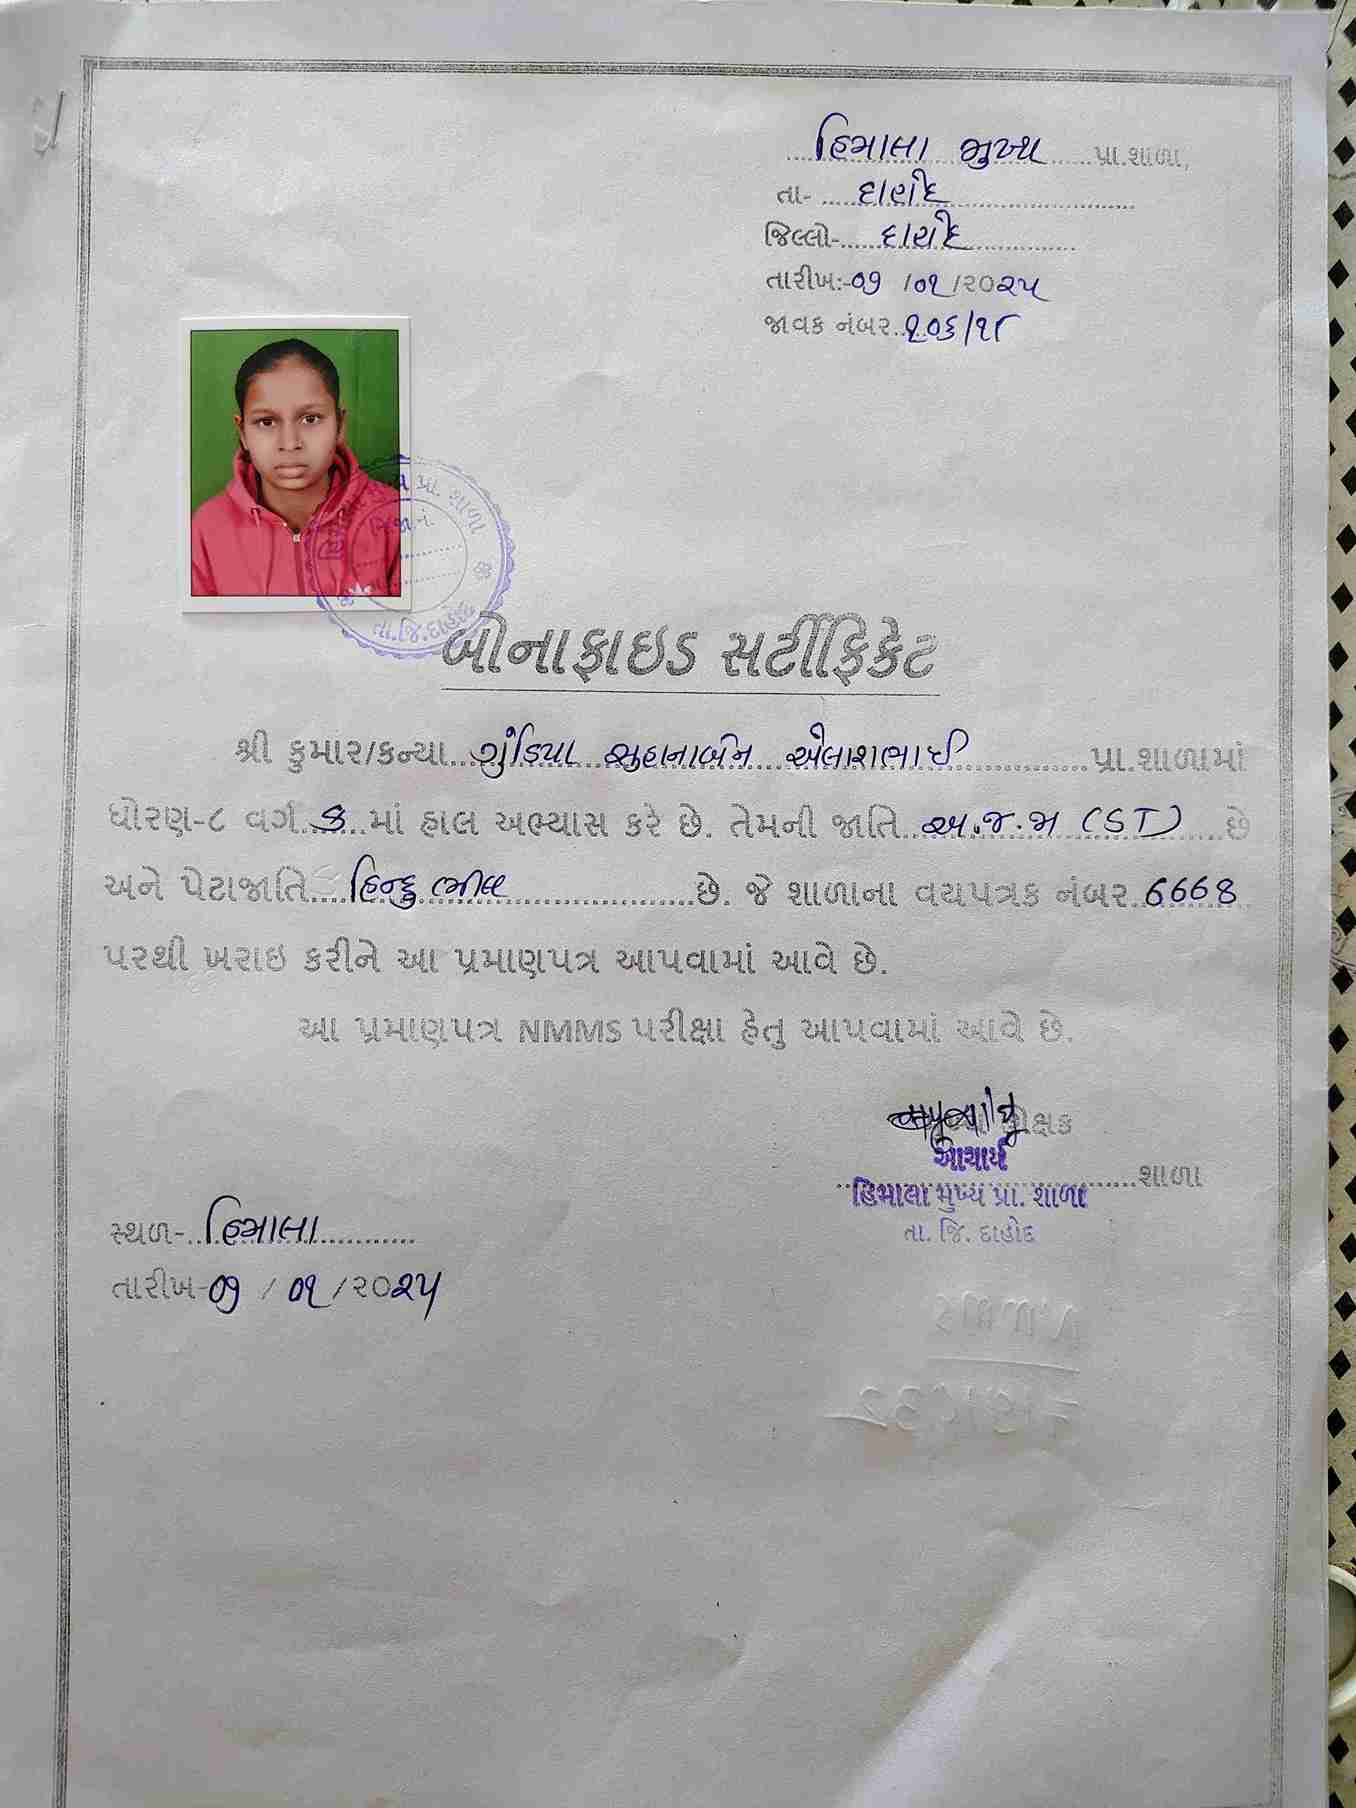 હિમાલા મુખ્ય પ્રા.શાળા,
તા- દાહોદ
જિલ્લો- દાહોદ
તારીખ:-૦૭ /૦૧/૨૦૨૫
જાવક નંબર ૧૦૬/૧૮
પ્રા. શાળા
તા.જિ.દાહોદ
બોનાફાઇડ સર્ટીફિકેટ
શ્રી કુમાર/કન્યા ગુંડિયા સુહાનાબેન પ્રા.શાળામાં
ધોરણ-૮ વર્ગ ક માં હાલ અભ્યાસ કરે છે. તેમની જાતિ અ.જ.જા (ST) છે
અને પેટાજાતિ હિન્દુ ભીલ છે. જે શાળાના વયપત્રક નંબર 6668
પરથી ખરાઇ કરીને આ પ્રમાણપત્ર આપવામાં આવે છે.
આ પ્રમાણપત્ર NMMS પરીક્ષા હેતુ આપવામાં આવે છે.
આચાર્ય
શાળા
હિમાલા મુખ્ય પ્રા. શાળા
તા. જિ. દાહોદ
સ્થળ- હિમાલા
તારીખ-૦૭ / ૦૧ /૨૦૨૫